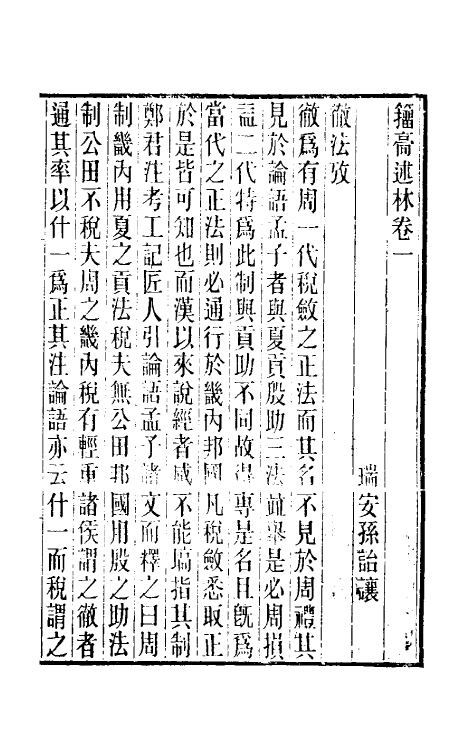 籀高述林卷一
瑞安孫詒讓
徹法攷
徹爲有周一代稅斂之正法而其名不見於周禮其
見於論語孟子者與夏貢殷助三法竝舉是必周損
益二代特爲此制與貢助不同故得專是名且旣爲
當代之正法則必通行於畿內邦國凡稅斂悉取正
於是皆可知也而漢以來說經者咸不能塙指其制
鄭君注考工記匠人引論語孟子諸文而釋之曰周
制畿內用夏之貢法稅夫無公田邦國用殷之助法
制公田不稅夫周之畿內稅有輕重諸侯謂之徹者
通其率以什一爲正其注論語亦云什一而稅謂之